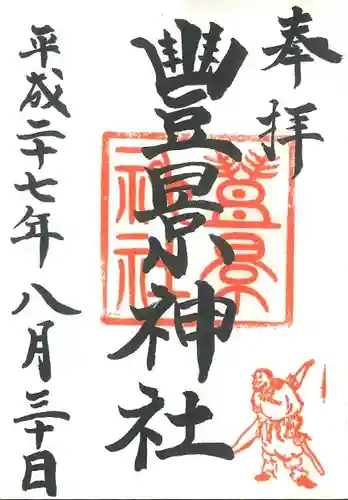 奉拝
豊景神社
平成二十七年八月三十日